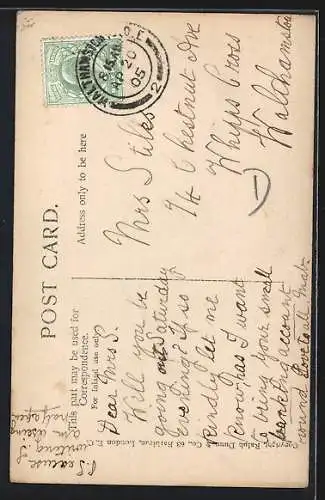 WALTHAMSTOW S.O.
8.15 PM
SP 20
05
2
POST CARD.
This part may be used for
Correspondence.
For Inland use only
Address only to be here
Mrs Stiles
74 Chestnut Ave
Whipps Cross
Walthamstow
Dear Mrs S.
Will you be
going out Saturday
evening? If so
kindly let me
know, has I want
to bring your small
banking account
round Love to all
Copyright, Ralph Dunn & Co., 63 Barbican, London E.C.
Because
writing I
am using
my